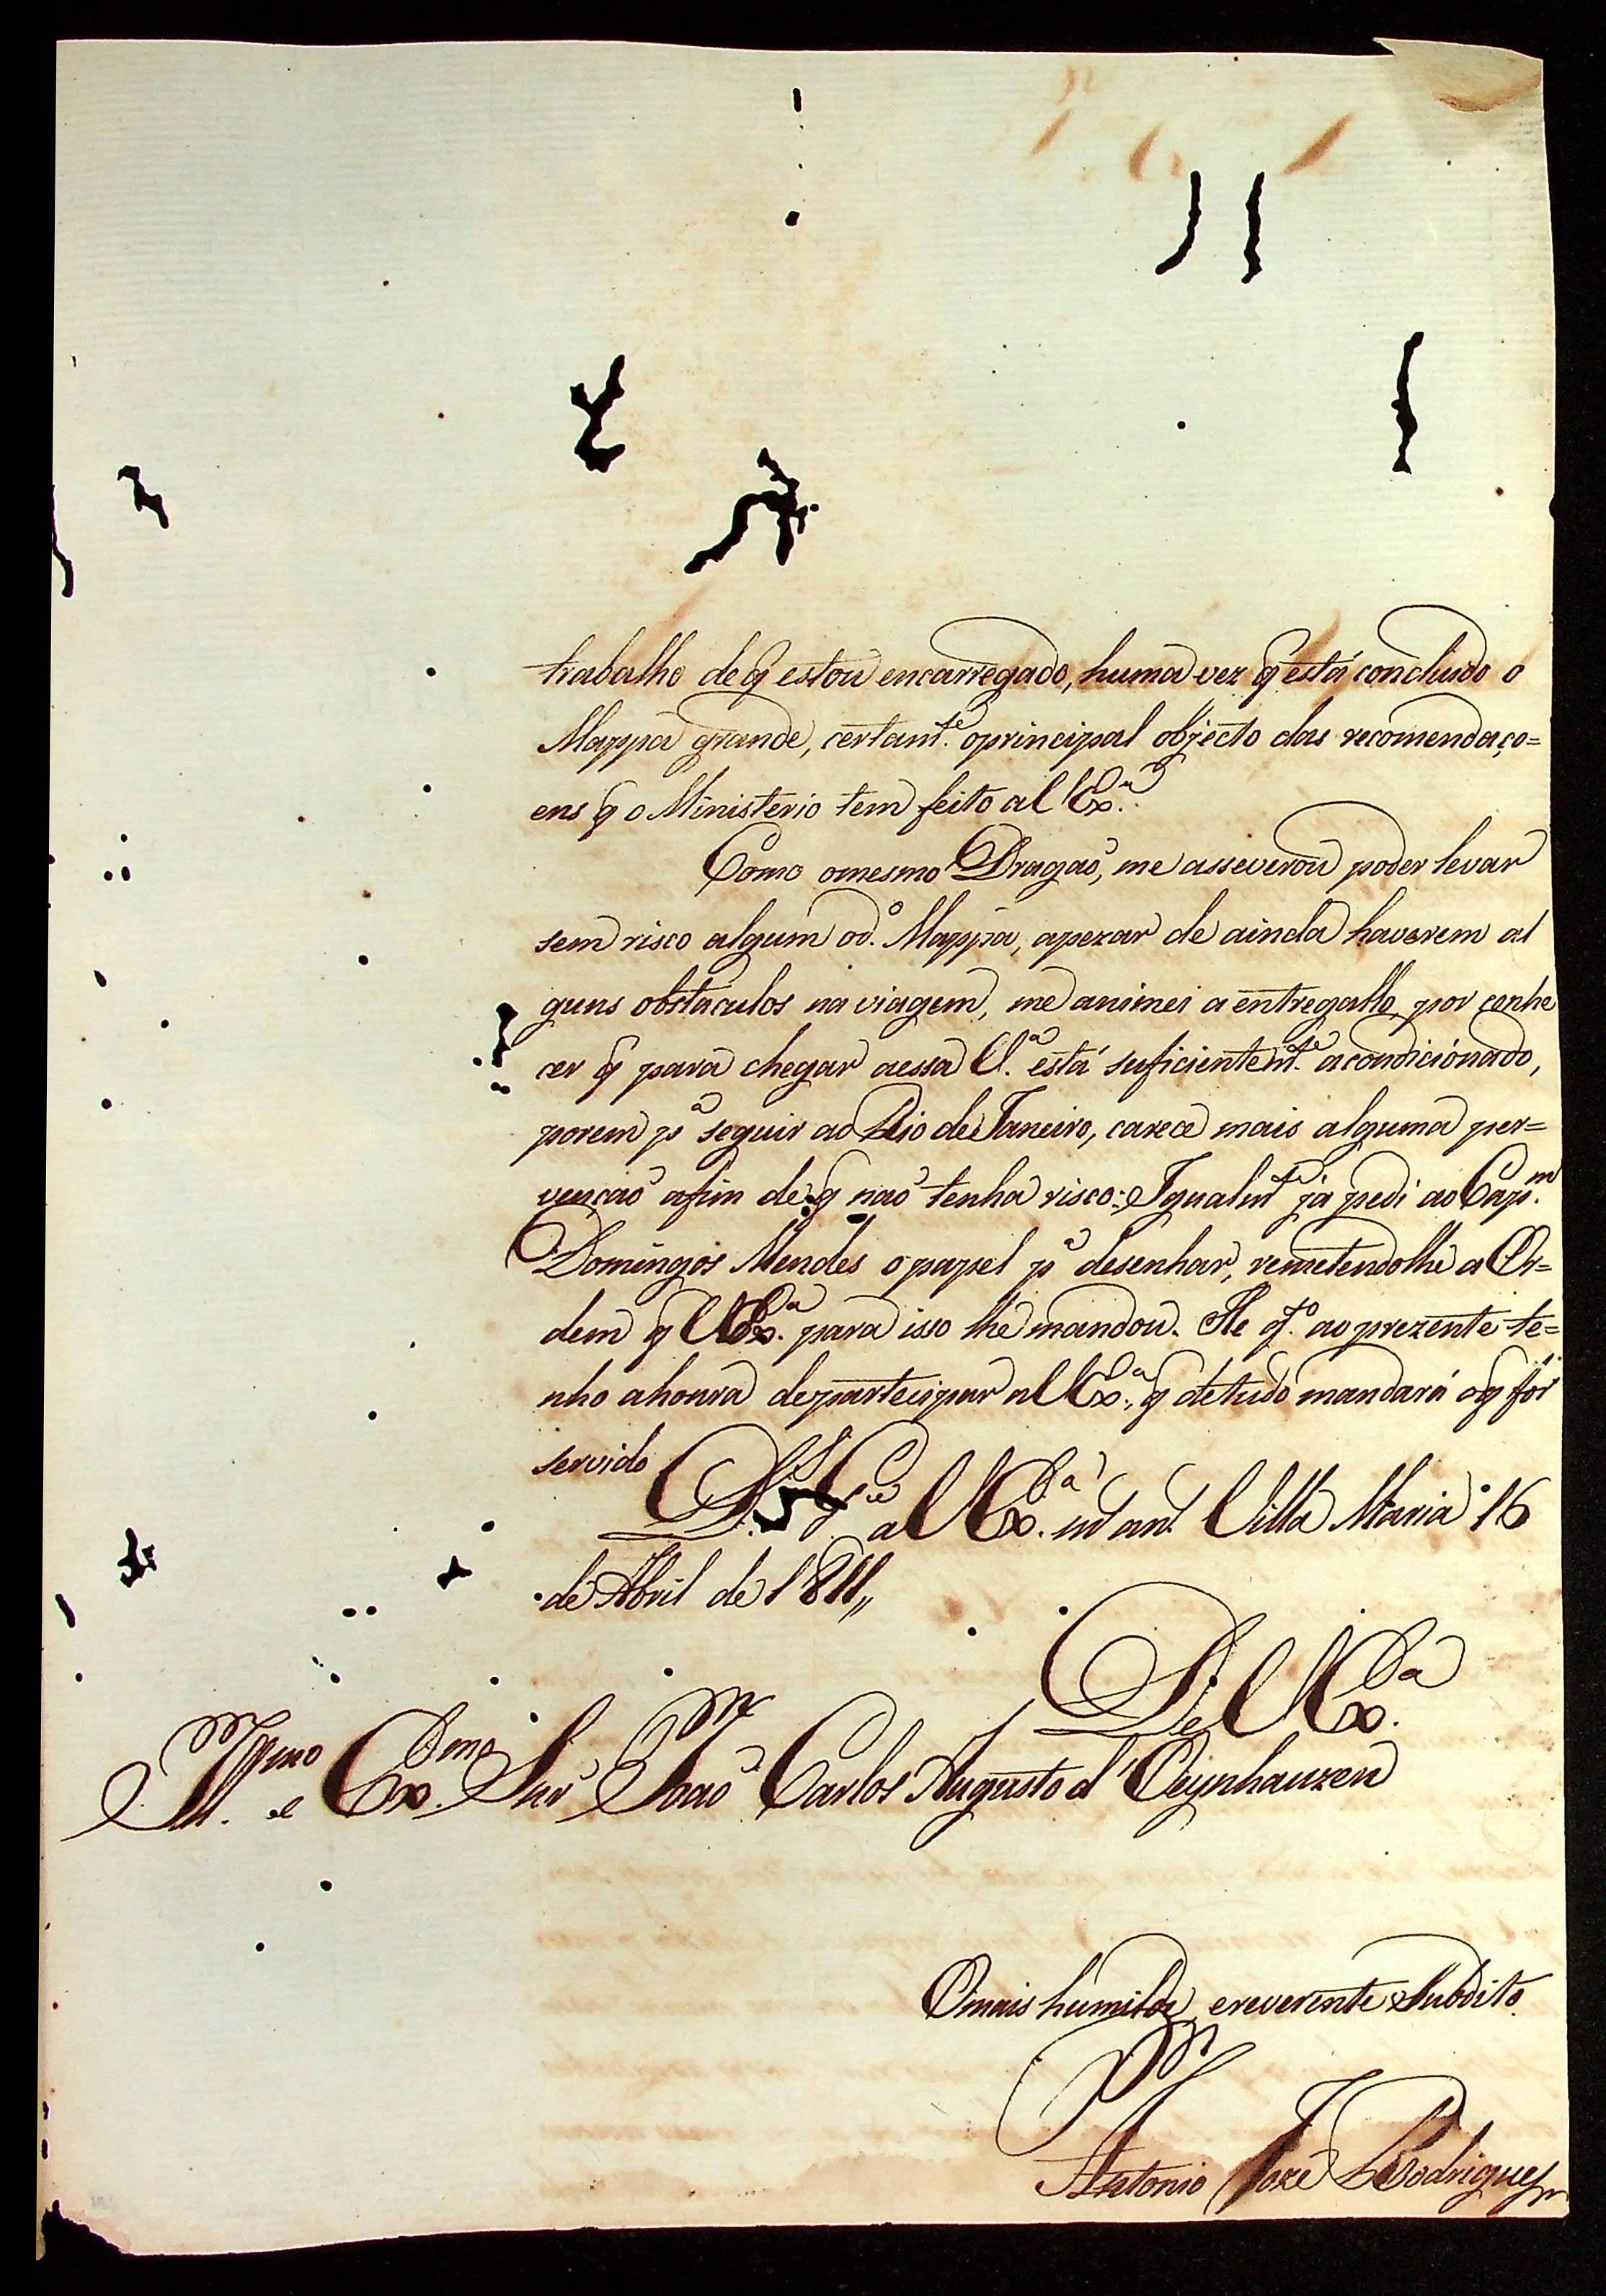 trabalho de q̃ estou encarregado, huma vez q̃ está concluido o
Mappa grande, certam.te o principal objecto das recomendaço=
ens q̃ o Ministerio tem feito a V Ex.a
Como o mesmo Dragaõ, me asseverou poder levar
sem risco algum o d.o Mappa, apezar de ainda haverem al
guns obstaculos na viagem, me animei a entregallo, por conhe
cer q̃ para chegar a essa V.a está suficientem.te acondicionado,
porem p.a seguir ao Rio de Janeiro, carece mais alguma per=
vençaõ afim de q̃ naõ tenha risco: Igualm.te já pedi ao Cap.m
Domingos Mendes o papel p.a desenhar, remetendolhe a Or=
dem q̃ V Ex.a para isso lhe mandou. He q.to ao prezente te=
nho a honra de partecipar a V Ex.a, q̃ de tudo mandará o q̃ for
servido
D.s G.e a V Ex.a m.s an.s Villa Maria 16
de Abril de 1811,,
De V Ex.a
Ill.mo e Ex.mo Snr Joaõ Carlos Augusto d'Oeynhauzen
O mais humilde, e reverente Subdito
Antonio Jozé Rodrigues